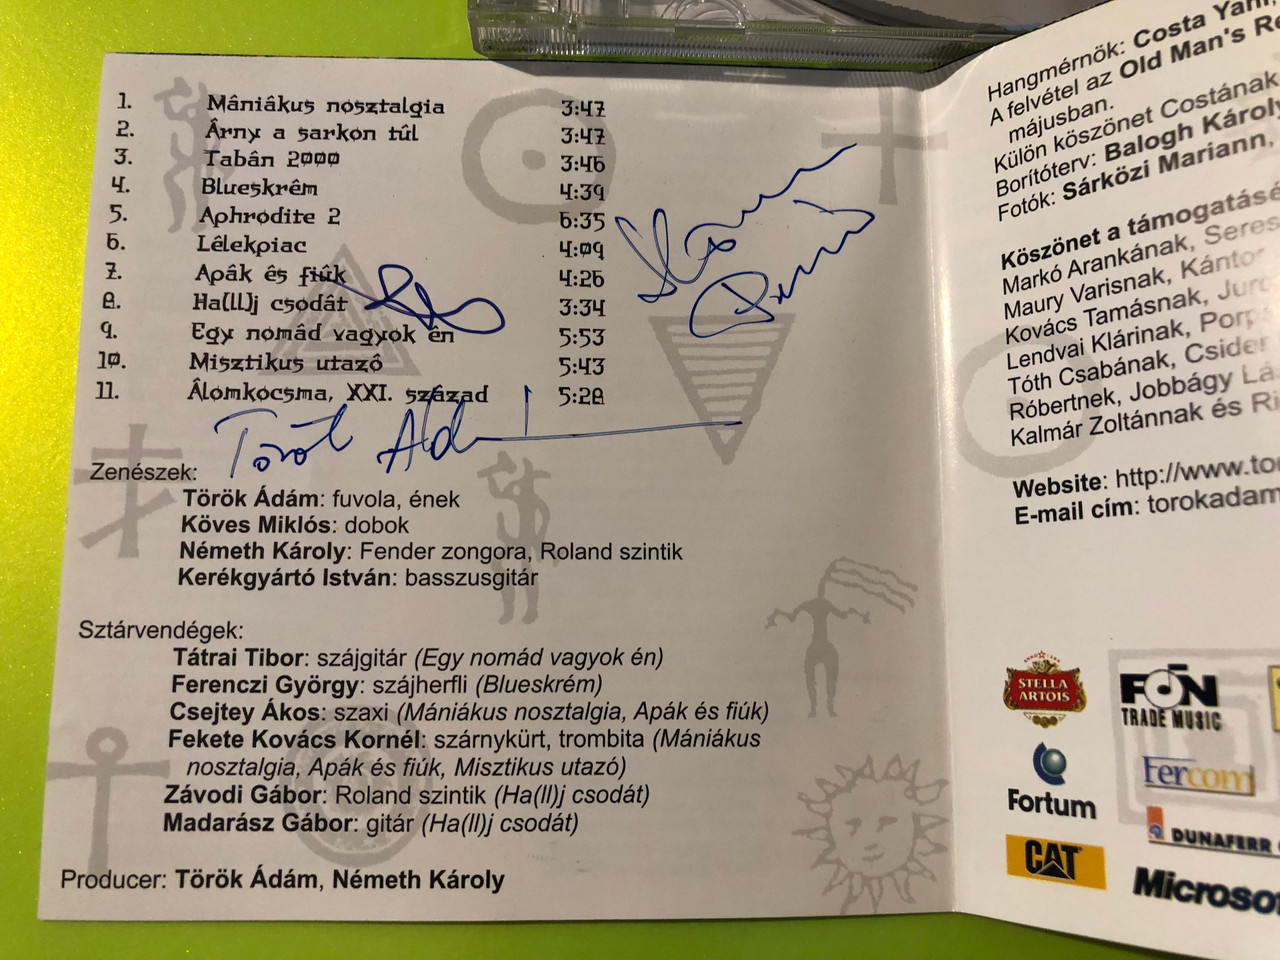 1. Mâniâkus nosztalgia 3:47
2. Ârny a sarkon tûl 3:47
3. Tabân 2000 3:46
4. Blueskrêm 4:39
5. Aphrodite 2 6:35
6. Lêlekpiac 4:09
7. Apâk ês fiûk 4:26
8. Ha(ll)j csodât 3:34
9. Egy nomâd vagyok ên 5:53
10. Misztikus utazô 5:43
11. Âlomkocsma, XXI. szâzad 5:28
Török Ádám
Zenészek:
Török Ádám: fuvola, ének
Köves Miklós: dobok
Németh Károly: Fender zongora, Roland szintik
Kerékgyártó István: basszusgitár
Sztárvendégek:
Tátrai Tibor: szájgitár (Egy nomád vagyok én)
Ferenczi György: szájherfli (Blueskrém)
Csejtey Ákos: szaxi (Mániákus nosztalgia, Apák és fiúk)
Fekete Kovács Kornél: szárnykürt, trombita (Mániákus
nosztalgia, Apák és fiúk, Misztikus utazó)
Závodi Gábor: Roland szintik (Ha(ll)j csodát)
Madarász Gábor: gitár (Ha(ll)j csodát)
Producer: Török Ádám, Németh Károly
Hangmérnök: Costa Yani,
A felvétel az Old Man's
májusban.
Külön köszönet Costának
Borítóterv: Balogh Károly
Fotók: Sárközi Mariann,
Köszönet a támogatásé
Markó Arankának, Seres
Maury Varisnak, Kántor
Kovács Tamásnak,
Lendvai Klárinak,
Tóth Csabának, Csider
Róbertnek, Jobbágy
Kalmár Zoltánnak és
Website: http://www.to
E-mail cím: torokadam
STELLA
ARTOIS
FON
TRADE MUSIC
Fortum
Fercom
DUNAFERR
CAT
Microsof